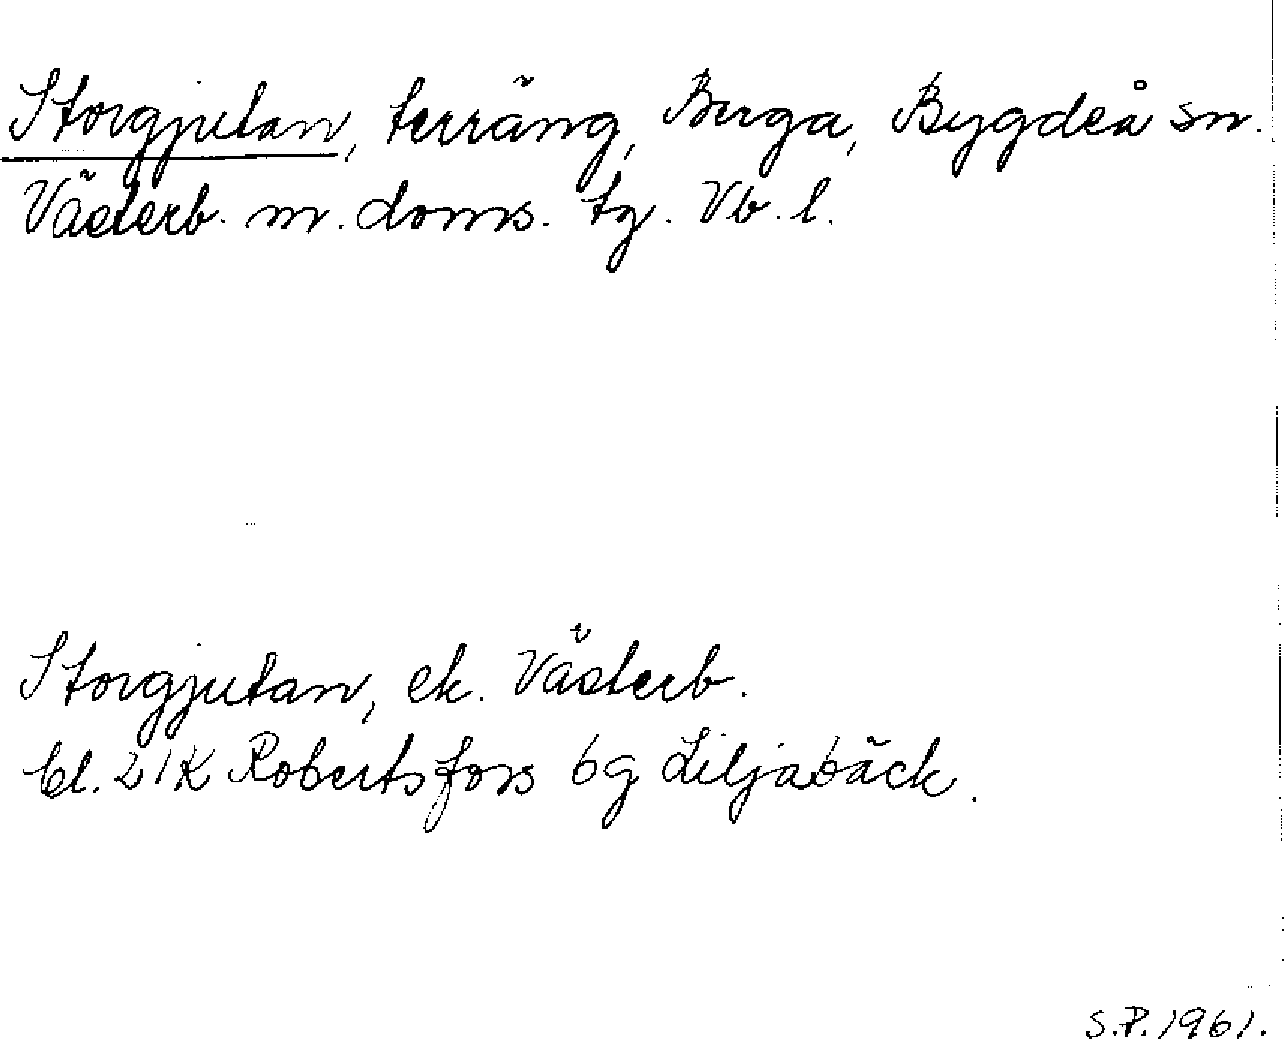 Storgjutan, terräng, Berga, Bygdeå sn.
Västerb. m. doms. tg. Vb. l.
Storgjutan, ek. Västerb.
bl. 21K Robertsfors 6g Liljabäck.
S.P. 1961.